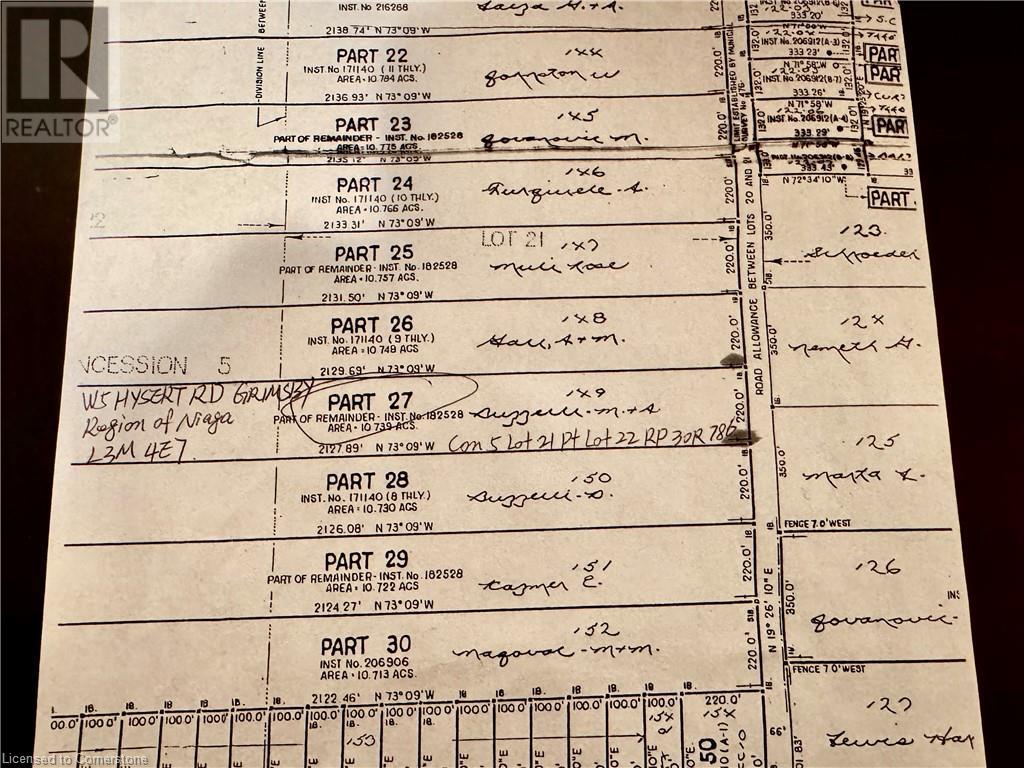 INST. No 216268
2138.74' N 73° 09' W
PART 22
INST. No 171140 (11 THLY.)
AREA = 10.784 ACS.
144
2136.93' N 73° 09' W
DIVISION LINE BETWEE
PART 23
PART OF REMAINDER - INST. No. 182528
AREA = 10.775 ACS.
145
Jovanovic M.
2135.12' N 73° 09' W
PART 24
INST No. 171140 (10 THLY.)
AREA = 10.766 ACS.
146
2133.31' N 73° 09' W
LOT 21
PART 25
PART OF REMAINDER - INST. No. 182528
AREA = 10.757 ACS.
147
2131.50' N 73° 09' W
PART 26
INST. No. 171140 (9 THLY.)
AREA = 10.748 ACS
148
Hall, A + M.
2129.69' N 73° 09' W
NCESSION 5
W5 HYSERT RD GRIMSBY
Region of Niaga
L3M 4E7
PART 27
PART OF REMAINDER - INST. No. 182528
AREA = 10.739 ACS.
149
Suzzelli - M + A
2127.89' N 73° 09' W
Con 5 Lot 21 Pt Lot 22 RP 30R 786
PART 28
INST. No. 171140 (8 THLY.)
AREA = 10.730 ACS
150
Suzzelli - D.
2126.08' N 73° 09' W
PART 29
PART OF REMAINDER - INST. No. 182528
AREA = 10.722 ACS.
151
Kazmer E.
2124.27' N 73° 09' W
PART 30
INST No. 206906
AREA = 10.713 ACS.
152
Magovac - M + M.
2122.46' N 73° 09' W
220.0'
100.0' 100.0' 100.0' 100.0' 100.0' 100.0' 100.0' 100.0' 100.0' 100.0'
153
154
LIMIT ESTABLISHED BY MUNICIPAL
SURVEY No 476
ROAD ALLOWANCE BETWEEN LOTS 20 AND 21
N 19° 26' 10" E
220.0'
220.0'
220.0'
220.0'
220.0'
220.0'
220.0'
220.0'
220.0'
333.20'
N 71° 58' W
INST No. 206912 (A-3)
333.23'
N 71° 58' W
333.26'
N 71° 58' W
INST No. 206912 (A-4)
333.29'
333.43'
N 72° 34' 10" W
PAR
PAR
PAR
PART
123
Schroeder
350.0'
124
Nemeth H.
350.0'
125
Marta L.
350.0'
FENCE 7.0' WEST
126
Jovanovic -
350.0'
FENCE 7.0' WEST
127
Lewis Hay
66'
83'
REALTOR®
Licensed to Cornerstone